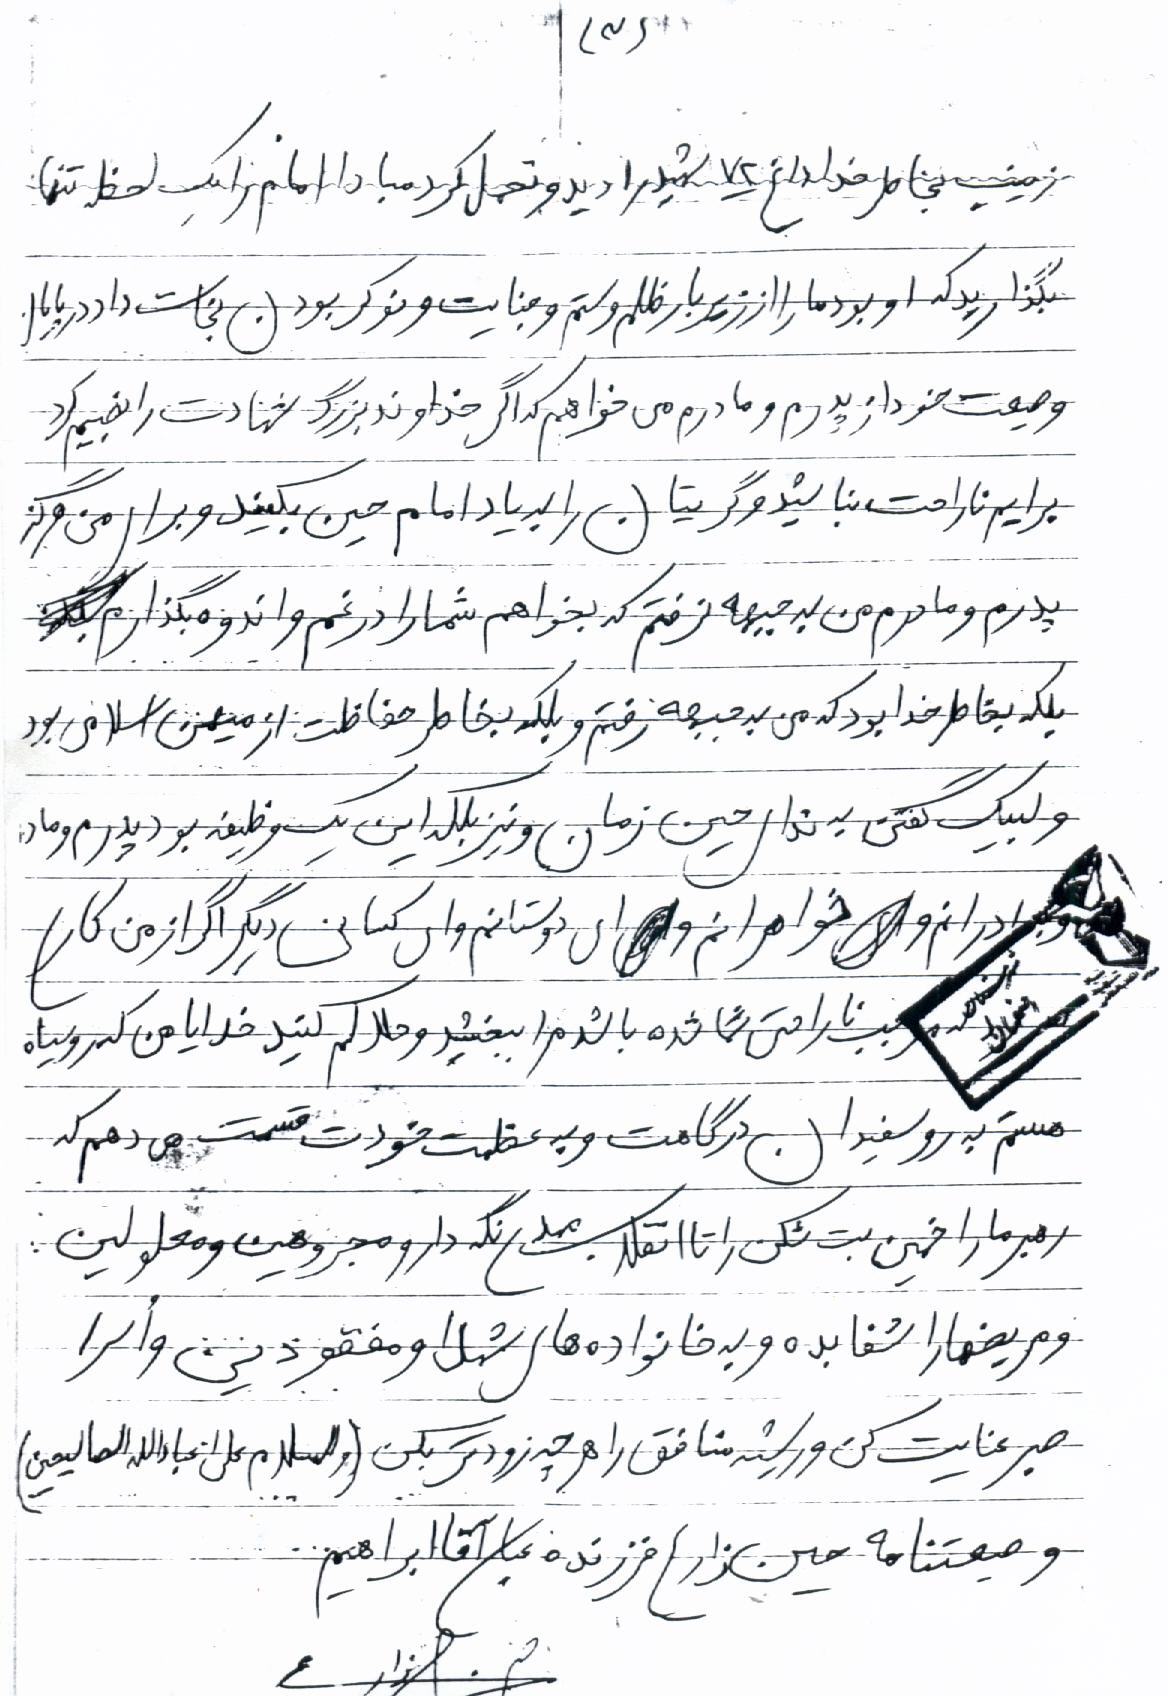 (۳)
زمینب بخاطر خدا داغ ۷۲ شهید را دید و تحمل کرد مبادا امام را یک لحظه تنها
بگذارید که او بود ما را از زیر بار ظلم و ستم و جنایت و نوکر بودن نجات داد در پایان
وصیت خود از پدرم و مادرم می خواهم که اگر خداوند بزرگ شهادت را نصیبم کرد
برایم ناراحت نباشید و گریتان را به یاد امام حسین بکنید و برای من هرگز
پدرم و مادرم من به جبهه نرفتم که بخواهم شما را در غم و اندوه بگذارم
بلکه بخاطر خدا بود که من به جبهه رفتم و بلکه بخاطر حفاظت از میهن اسلامی بود
و لبیک گفتن به ندای حسین زمان و نیز بلکه این یک وظیفه بود پدرم و مادر
و برادرانم و خواهرانم و ای دوستانم و ای کسانی دیگر اگر از من کاری
که موجب ناراحتی شما شده باشد مرا ببخشید و حلالم کنید خدایا من که روسیاه
هستم به روسفیدان درگاهت و به عظمت خودت قسمت می دهم که
رهبر ما را خمین بت شکن را تا انقلاب نگه دار و مجروحین و معلولین
و مریضها را شفا بده و به خانواده های شهدا و مفقودین و اُسرا
صبر عنایت کن و ریشه منافق را هر چه زودتر بکن (والسلام علی عبادالله الصالحین)
وصیتنامه حسین زارع فرزنده عباس آقا ابراهیم
زارع